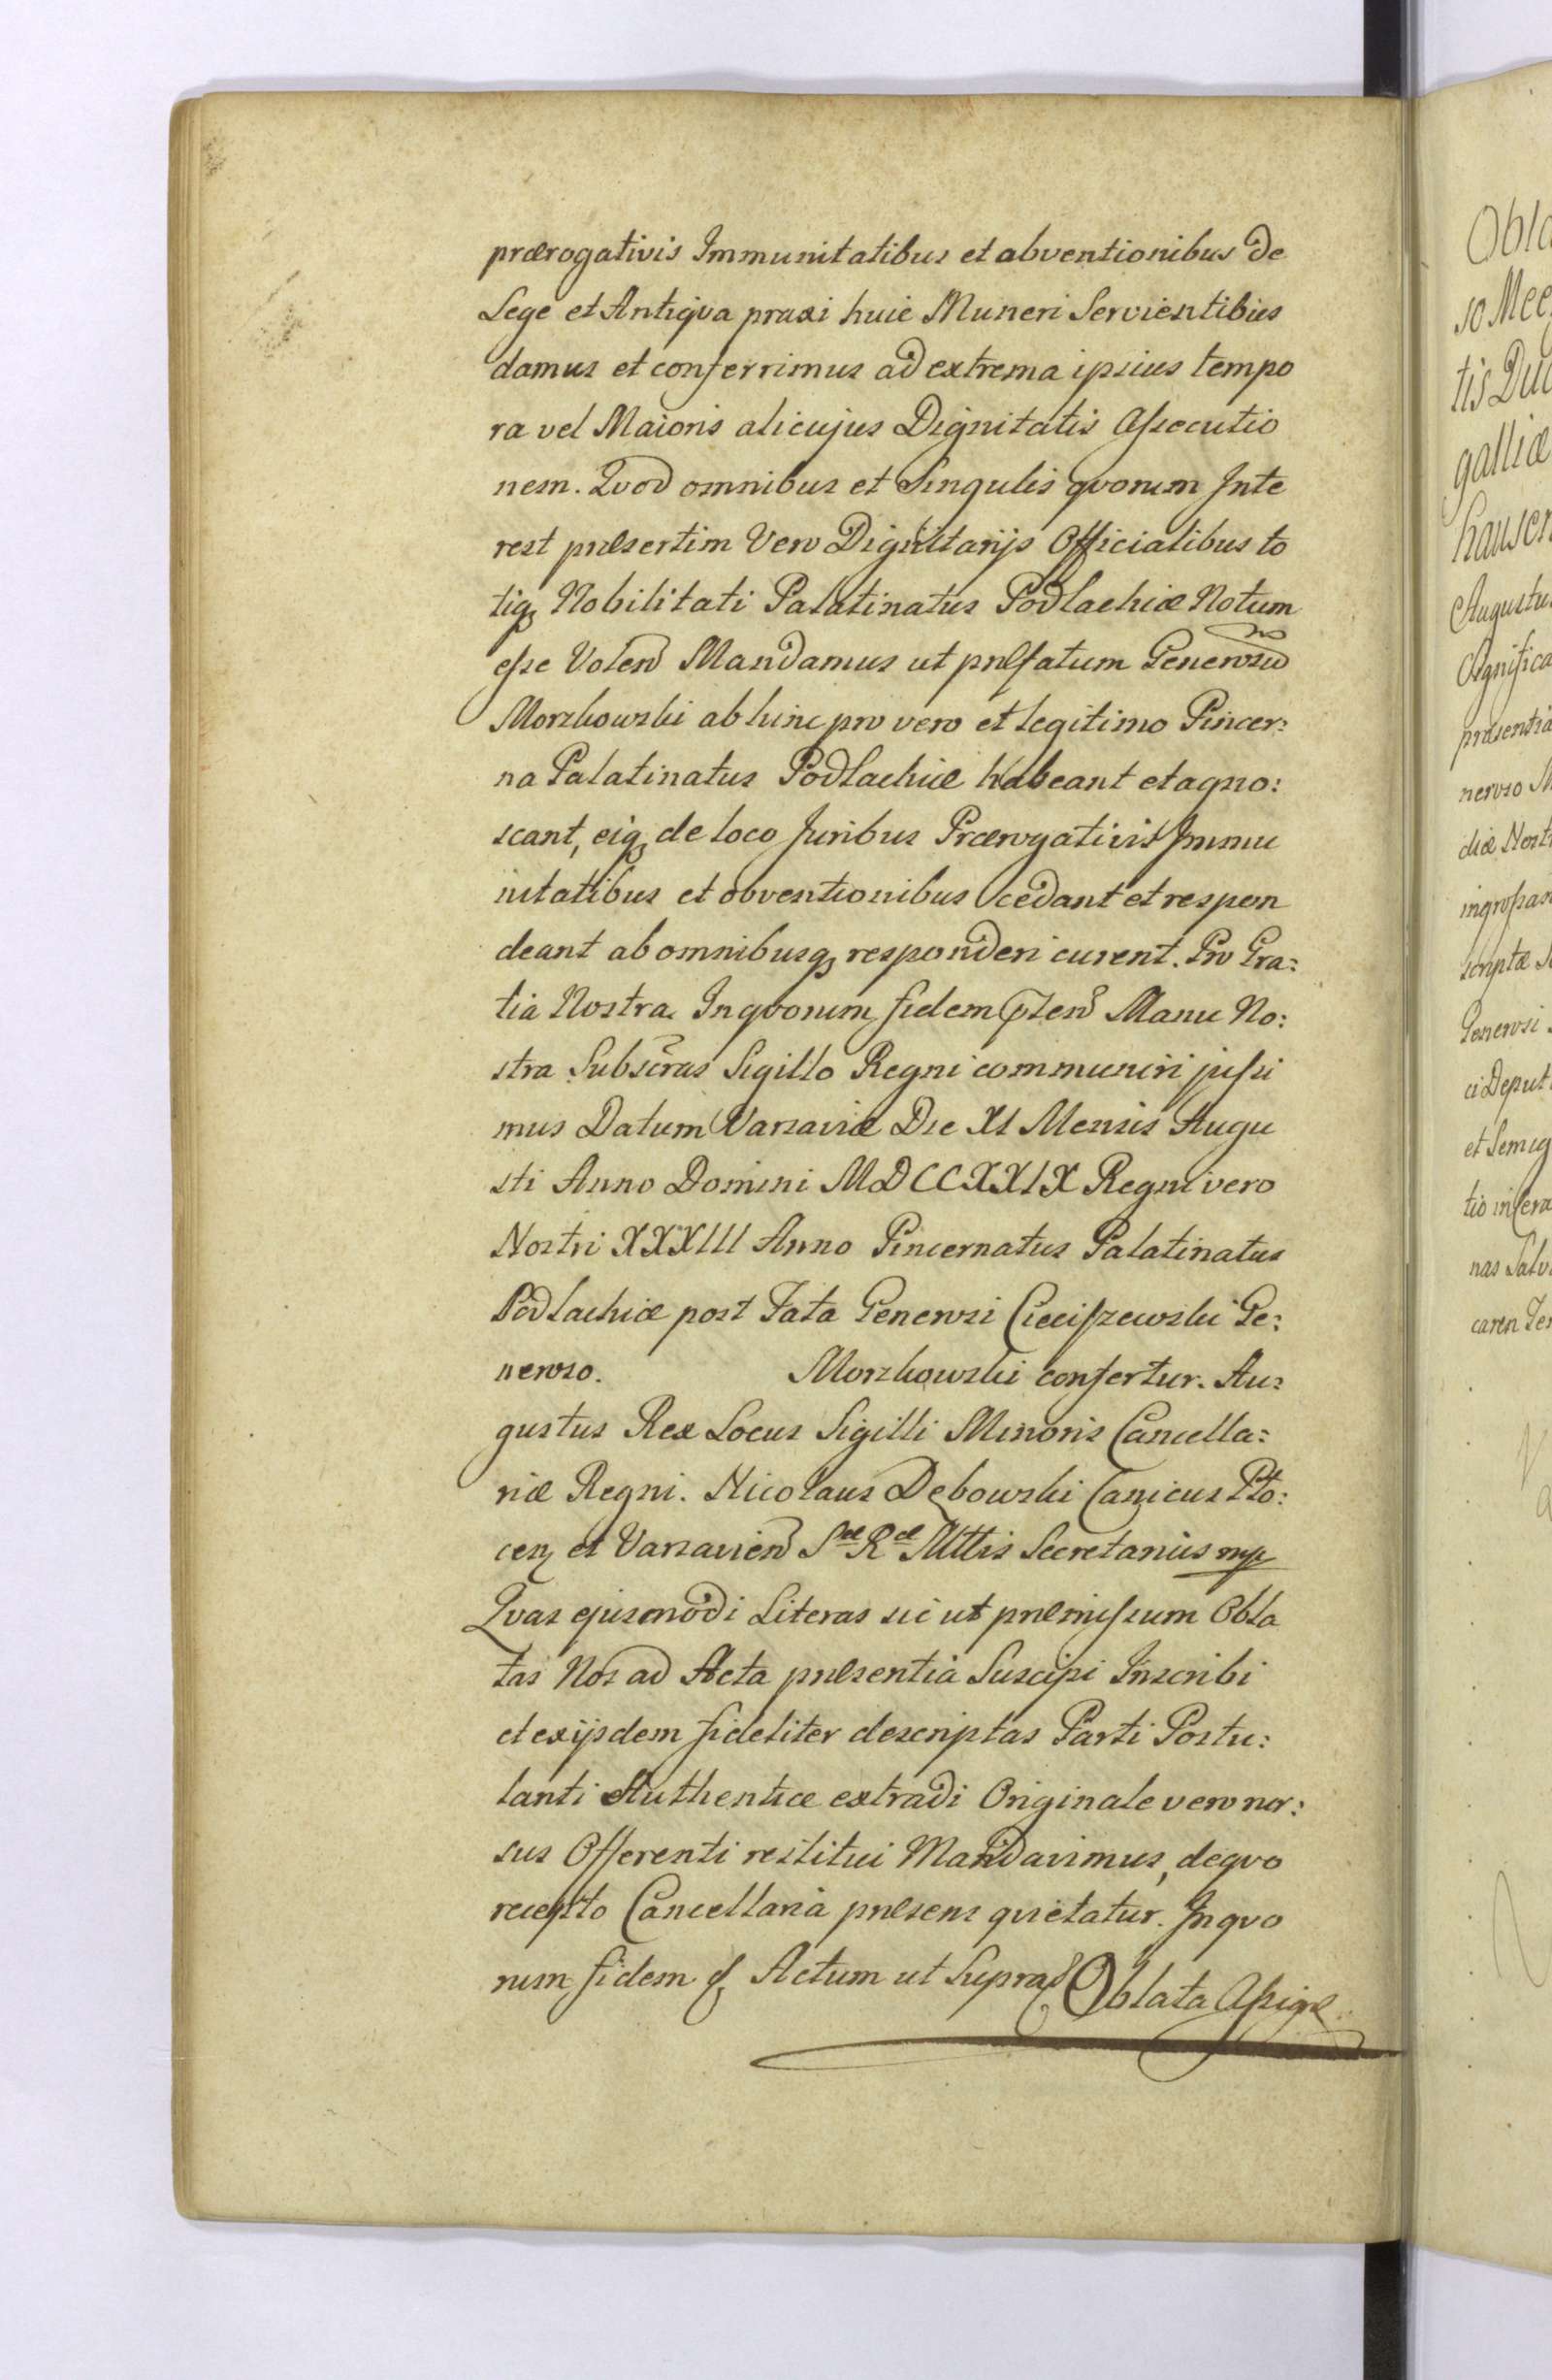 prærogativis Immunitatibus et abventionibus de
Lege et Antiqva praxi huic Muneri Servientibus
damus et conferrimus ad extrema ipsius tempo
ra vel Maioris alicujus Dignitatis Assecutio
nem. Qvod omnibus et Singulis qvorum Inte
rest præsertim Vero Dignitarijs Officialibus to
tiq Nobilitati Palatinatus Podlachiæ Notum
esse Volen Mandamus ut præfatum Generosu
Morzkowski abhinc pro vero et legitimo Pincer:
na Palatinatus Podlachiæ habeant et agno:
scant, eiq de loco Juribus Prærogativis Immu
nitatibus et obventionibus cedant et respon
deant ab omnibusq responderi curent. Pro Gra:
tia Nostra. In qvorum fidem pnten Manu No:
stra Subscras Sigillo Regni communiri jussi
mus Datum Varsaviæ Die XI Mensis Augu
sti Anno Domini MDCCXXIX Regni vero
Nostri XXXIII Anno Pincernatus Palatinatus
Podlachiæ post Fata Generosi Cieciszewski Ge:
neroso. Morzkowski confertur. Au:
gustus Rex Locus Sigilli Minoris Cancella:
riæ Regni. Nicolaus Dębowski Canicus Plo:
cen et Varsavien Sæ Ræ Mttis Secretarius mp
Qvas ejusmodi Literas sic ut præmissum Obla
tas Nos ad Acta præsentia Suscipi Inscribi
et ex ijsdem fideliter descriptas Parti Postu:
lanti Authenticæ extradi Originale vero rur:
sus Offerenti restitui Mandavimus, de qvo
recepto Cancellaria præsens qvietatur. In qvo
rum fidem & Actum ut Supra Oblata Assigæ
Obla
so Mee
tis Duc
galliæ
hausen
Augustu
Significa
præsentia
neroso M
diæ Nost
ingrossan
scriptæ
Generosi
ci Deput
et Semig
tio in
nas Salv
caren Ter